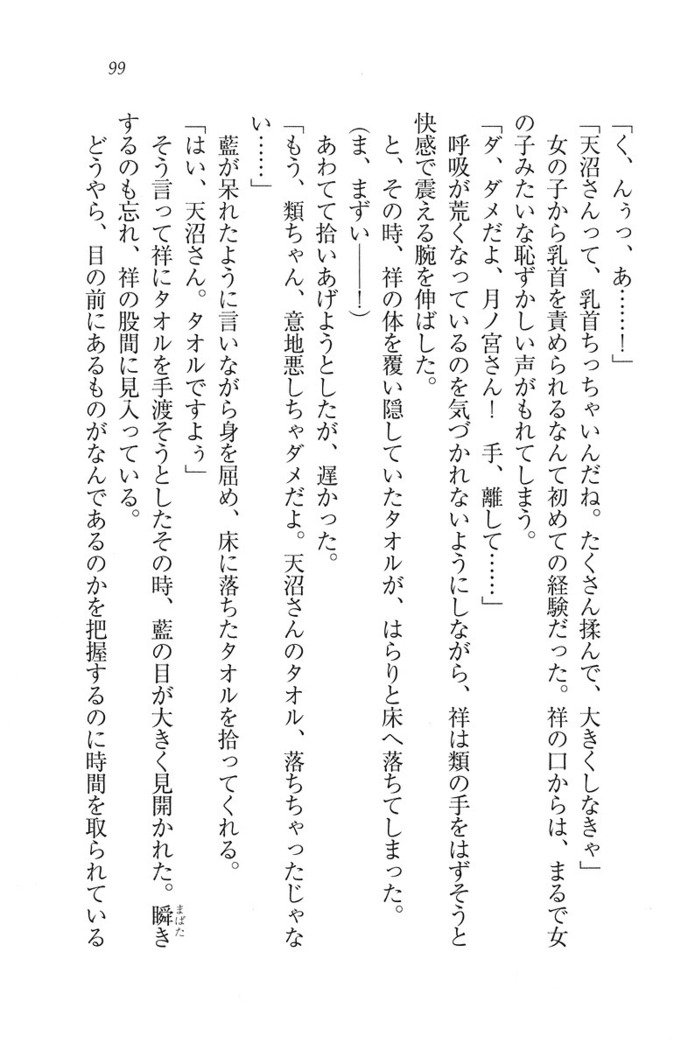 99
「く、んぅっ、あ……！」
「天沼さんって、乳首ちっちゃいんだね。たくさん揉んで、大きくしなきゃ」
女の子から乳首を責められるなんて初めての経験だった。祥の口からは、まるで女
の子みたいな恥ずかしい声がもれてしまう。
「ダ、ダメだよ、月ノ宮さん！　手、離して……」
呼吸が荒くなっているのを気づかれないようにしながら、祥は類の手をはずそうと
快感で震える腕を伸ばした。
と、その時、祥の体を覆い隠していたタオルが、はらりと床へ落ちてしまった。
（ま、まずい――！）
あわてて拾いあげようとしたが、遅かった。
「もう、類ちゃん、意地悪しちゃダメだよ。天沼さんのタオル、落ちちゃったじゃな
い……」
藍が呆れたように言いながら身を屈め、床に落ちたタオルを拾ってくれる。
「はい、天沼さん。タオルですよぅ」
そう言って祥にタオルを手渡そうとしたその時、藍の目が大きく見開かれた。瞬き
まばた
するのも忘れ、祥の股間に見入っている。
どうやら、目の前にあるものがなんであるのかを把握するのに時間を取られている